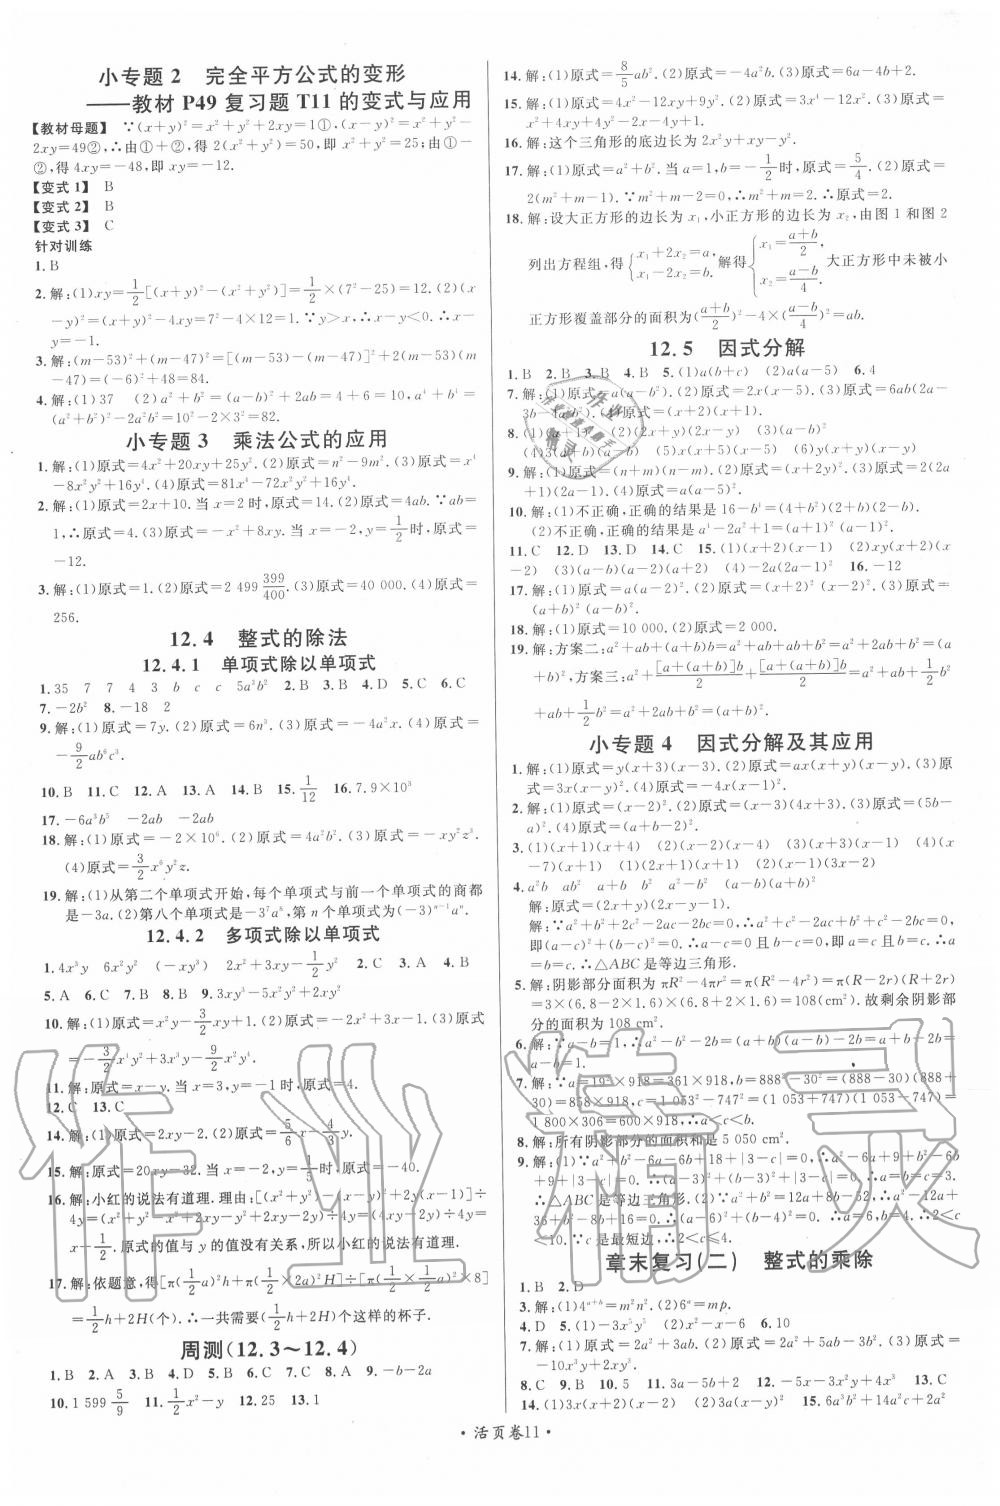 小专题 2　完全平方公式的变形
——教材 P49 复习题 T11 的变式与应用
【教材母题】 ∵(x+y)²=x²+y²+2xy=1①,(x-y)²=x²+y²-
2xy=49②,∴由①+②,得 2(x²+y²)=50,即 x²+y²=25;由①-
②,得 4xy=-48,即 xy=-12.
【变式 1】 B
【变式 2】 B
【变式 3】 C
针对训练
1. B
2. 解:(1)xy=1/2[(x+y)²-(x²+y²)]=1/2×(7²-25)=12.(2)(x
-y)²=(x+y)²-4xy=7²-4×12=1.∵y>x,∴x-y<0.∴x
-y=-1.
3. 解:(m-53)²+(m-47)²=[(m-53)-(m-47)]²+2(m-53)(m
-47)=(-6)²+48=84.
4. 解:(1)37　(2)a²+b²=(a-b)²+2ab=4+6=10,a⁴+b⁴=
(a²+b²)²-2a²b²=10²-2×3²=82.
小专题 3　乘法公式的应用
1. 解:(1)原式=4x²+20xy+25y².(2)原式=n²-9m².(3)原式=x⁴
-8x²y²+16y⁴.(4)原式=81x⁴-72x²y²+16y⁴.
2. 解:(1)原式=2x+10.当 x=2时,原式=14.(2)原式=4ab.∵ab=
1,∴原式=4.(3)原式=-x²+8xy.当 x=-2,y=1/2时,原式=
-12.
3. 解:(1)原式=1.(2)原式=2 499 399/400.(3)原式=40 000.(4)原式=
256.
12.4　整式的除法
12.4.1　单项式除以单项式
1. 35　7　7　4　3　b　c　c　5a³b²　2. B　3. B　4. D　5. C　6. C
7. -2b²　8. -18　2
9. 解:(1)原式=7y.(2)原式=6n³.(3)原式=-4a²x.(4)原式=
-9/2ab⁶c³.
10. B　11. C　12. A　13. A　14. B　15. 1/12　16. 7.9×10³
17. -6a³b⁵　-2ab　-2ab
18. 解:(1)原式=-2×10⁶.(2)原式=4a²b².(3)原式=-xy²z³.
(4)原式=3/2x⁶y²z.
19. 解:(1)从第二个单项式开始,每个单项式与前一个单项式的商都
是-3a.(2)第八个单项式是-3⁷a⁸,第 n 个单项式为(-3)ⁿ⁻¹aⁿ.
12.4.2　多项式除以单项式
1. 4x³y　6x²y²　(-xy³)　2x²+3xy-1/2y²　2. C　3. A　4. B
5. A　6. C　7. B　8. B　9. 3xy³-5x²y²+2xy²
10. 解:(1)原式=x²-3/2xy+1.(2)原式=-2x²+3x-1.(3)原式
=-3/2x⁴y²+3x³y-9/2x²y².
11. 解:原式=x-y.当 x=3,y=-1时,原式=4.
12. C　13. C
14. 解:(1)原式=2xy-2.(2)原式=5/6x-4/3y.
15. 解:原式=20xy-32.当 x=1,y=-2时,原式=-72.
16. 解:小红的说法有道理.理由:[x(x²+y)-x²(x-y)+2x²y]÷
4y=(x³+x²y-x³+x²y+2x²y)÷4y=(4x²y)÷4y=
x².∵原式的值与 y 的值没有关系,所以小红的说法有道理.
17. 解:依题意,得[π(1/2a)²h+π(1/2×2a)²H]÷[π(1/2×1/2a)²×8]
=(1/2h+2H)个.∴一共需要(1/2h+2H)个这样的杯子.
周测(12.3～12.4)
1. B　2. A　3. B　4. D　5. B　6. C　7. B　8. A　9. -b-2a
10. 1 599 5/9　11. 1/2x²-y　12. 25　13. 1
14. 解:(1)原式=8/5ab².(2)原式=-4a²b.(3)原式=6a-4b+2.
15. 解:(1)原式=4x²-12xy+9y².(2)原式=2y-4.(3)原式=
x²+4xy+4y²-2x-4y+1.
16. 解:这个三角形的底边长为2x²y³+xy-y².
17. 解:(1)原式=a²+b².当 a=1,b=-1/2时,原式=5/4.(2)原式=
2(m²+m-1).∵m²+m-2=0,∴m²+m=2.∴原式=2.
18. 解:设大正方形的边长为 x₁,小正方形的边长为 x₂,由图1和图2
列出方程组,得{x₁+2x₂=a, x₁-2x₂=b.解得{x₁=(a+b)/2, x₂=(a-b)/4.大正方形中未被小
正方形覆盖部分的面积为((a+b)/2)²-4×((a-b)/4)²=ab.
12.5　因式分解
1. B　2. B　3. B　4. B　5. (1)a(b+c)　(2)a(a-5)　6. 4
7. 解:(1)原式=a(a-b²).(2)原式=2x(x-5).(3)原式=6ab(2a-
3b).(4)原式=x(x+2)(x+1).
9. 解:(1)原式=(n+m)(n-m).(2)原式=(x+2y)².(3)原式=2(2a
+1)(2a-1).(4)原式=a(a-5)².
10. 解:(1)不正确,正确的结果是16-b⁴=(4+b²)(2+b)(2-b).
(2)不正确,正确的结果是a⁴-2a²+1=(a+1)²(a-1)².
11. C　12. D　13. D　14. C　15. (1)(x+2)(x-1)　(2)xy(x+2)(x
-2)　(3)5(a-b)(a-b-2)　(4)-2a(2a-1)²　16. -12
17. 解:(1)原式=(a²+b²)(a-b).(2)原式=(x+2)²(x-2)².(3)原式=
(a+b)²(a-b)².
18. 解:(1)原式=10 000.(2)原式=2 000.
19. 解:方案二:a²+ab+(a+b)b=a²+ab+ab+b²=a²+2ab+b²=(a
+b)²,方案三:a²+[a+(a+b)]b/2+[a+(a+b)]b/2=a²+ab+1/2b²
+ab+1/2b²=a²+2ab+b²=(a+b)².
小专题 4　因式分解及其应用
1. 解:(1)原式=y(x+3)(x-3).(2)原式=ax(x+y)(x-y).(3)原
式=3x(x-y)².(4)原式=-4x(x-1)².
2. 解:(1)原式=(a-b)(x-y).(2)原式=(x-3)(4x+3).(3)原式=(5b-
a)².(4)原式=(x-1)⁴.
3. (1)(x+1)(x+4)　(2)(x-2)(x-4)　(3)(x+3)(x-1)　(4)(x
-7)(x+1)　(5)(2x+1)(x+1)　(6)(x-2)(3x+1)
4. a²b　ab²　a　b　(a+b)(a-b)
解:原式=(2x-y)(2x-y-1).
5. 解:阴影部分面积为πR²-4πr²=π(R²-4r²)=π(R-2r)(R+2r)
=3×(6.8-2×1.6)×(6.8+2×1.6)=108(cm²).故剩余阴影部
分的面积为108 cm².
6. 解:∵a-b=1,∴a²-b²-2b=(a+b)(a-b)-2b=a+b-2b=
a-b=1.
7. 解:∵a=19²×918=361×918,b=888²-30²=(888-30)(888
+30)=858×918,c=1 053²-747²=(1 053+747)(1 053-747)=
1 800×306=600×918,∴a<c<b.
8. 解:所有阴影部分的面积和是5 050 cm².
章末复习(二)　整式的乘除
1. B　2. D
3. 解:(1)4ᵃ⁺ᵇ=m²n².(2)6ᵃ=mp.
4. D　5. (1)-3x⁵y⁵　(2)x²-x-6　6. 10
7. 解:(1)原式=2a²+3ab.(2)原式=2a²+5ab-3b².(3)原式=
-10x³y+2xy².
8. C　9. B　10. 5　11. 3a-5b+2　12. -5x-3x²y+4x³　13. C
14. (1)3x(x+2)(x-2)　(2)a(x-a)²　15. (1)c²+2a²　(2)14a²
· 活页卷11 ·